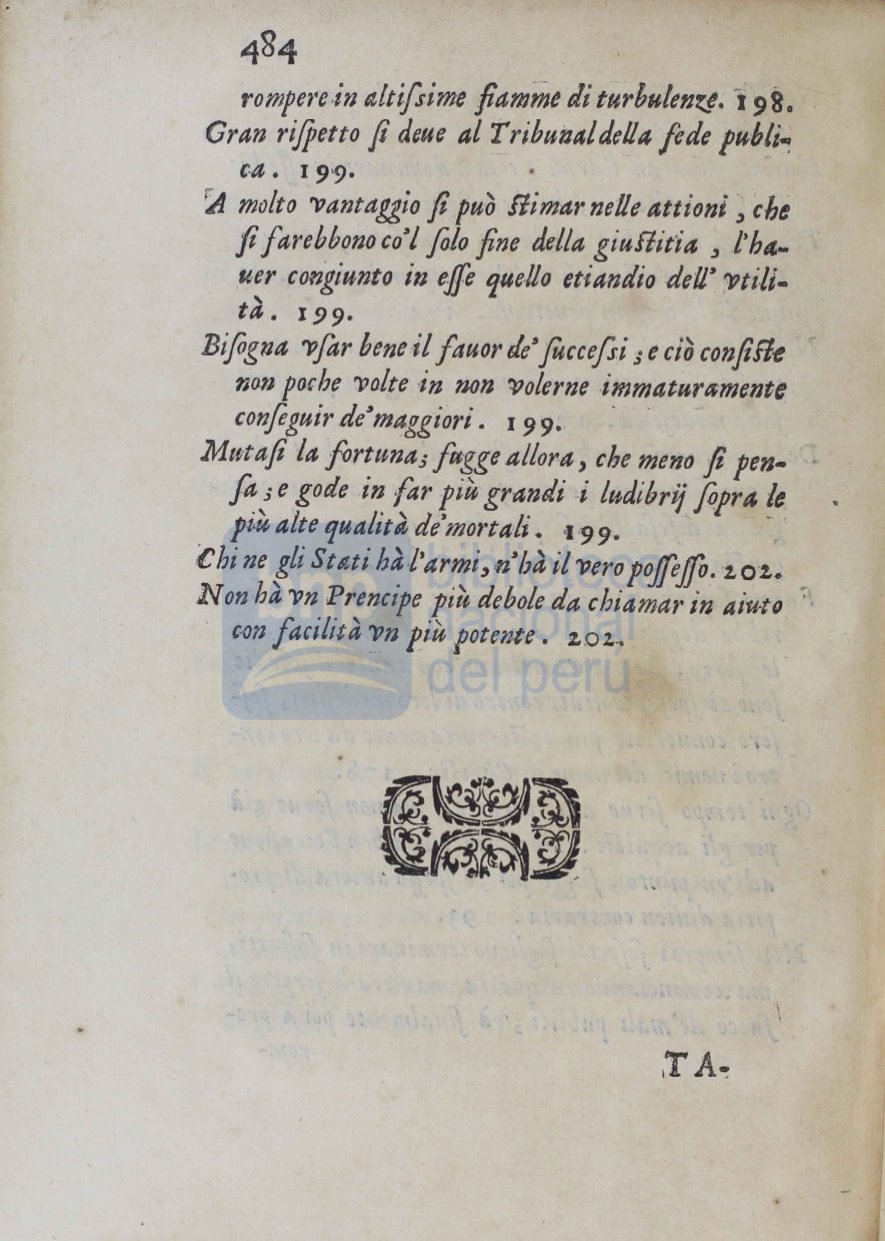 484
rompere in altiſsime fiamme di turbulenze. 198.
Gran riſpetto ſi deue al Tribunal della fede publi-
ca. 199.
A molto vantaggio ſi può ſtimar nelle attioni, che
ſi farebbono co'l ſolo fine della giuſtitia, l'ha-
uer congiunto in eſſe quello etiandio dell' vtili-
tà. 199.
Biſogna vſar bene il fauor de' ſucceſsi; e ciò conſiſte
non poche volte in non volerne immaturamente
conſeguir de' maggiori. 199.
Mutaſi la fortuna; fugge allora, che meno ſi pen-
ſa; e gode in far più grandi i ludibrij ſopra le
più alte qualità de' mortali. 199.
Chi ne gli Stati hà l'armi, n'hà il vero poſſeſſo. 202.
Non hà vn Prencipe più debole da chiamar in aiuto
con facilità vn più potente. 202.
biblioteca
nacional
del perú
TA-